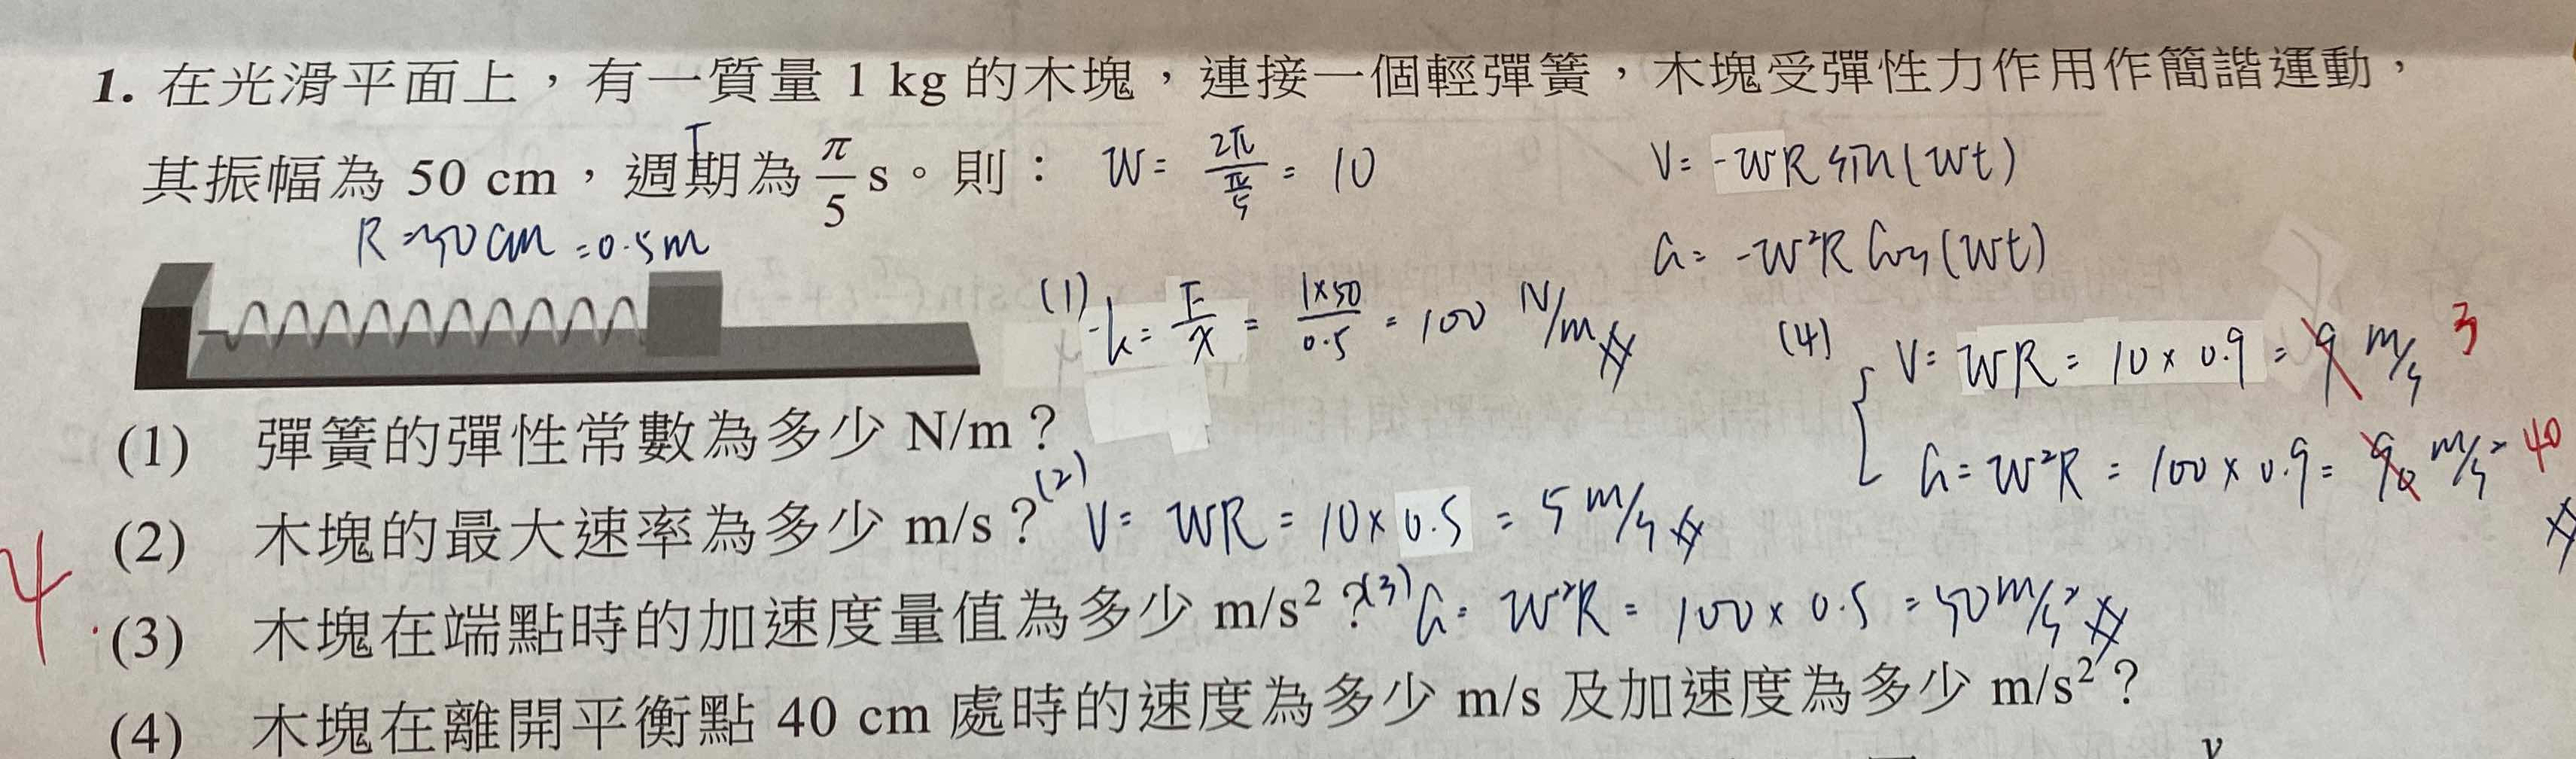 1. 在光滑平面上，有一質量 1 kg 的木塊，連接一個輕彈簧，木塊受彈性力作用作簡諧運動，
其振幅為 50 cm，週期為 π/5 s。則：
T
W = 2π/(π/5) = 10
V = -WR sin(Wt)
R = 50 cm = 0.5m
a = -W²R cos(Wt)
(1) -k = F/x = 1×50/0.5 = 100 N/m
(4) V = WR = 10 × 0.9 = 9 m/s 3
a = W²R = 100 × 0.9 = 90 m/s² 40
(1) 彈簧的彈性常數為多少 N/m？
(2) 木塊的最大速率為多少 m/s？
(2) V = WR = 10 × 0.5 = 5 m/s
4
(3) 木塊在端點時的加速度量值為多少 m/s²？
(3) a = W²R = 100 × 0.5 = 50 m/s²
(4) 木塊在離開平衡點 40 cm 處時的速度為多少 m/s 及加速度為多少 m/s²？
v